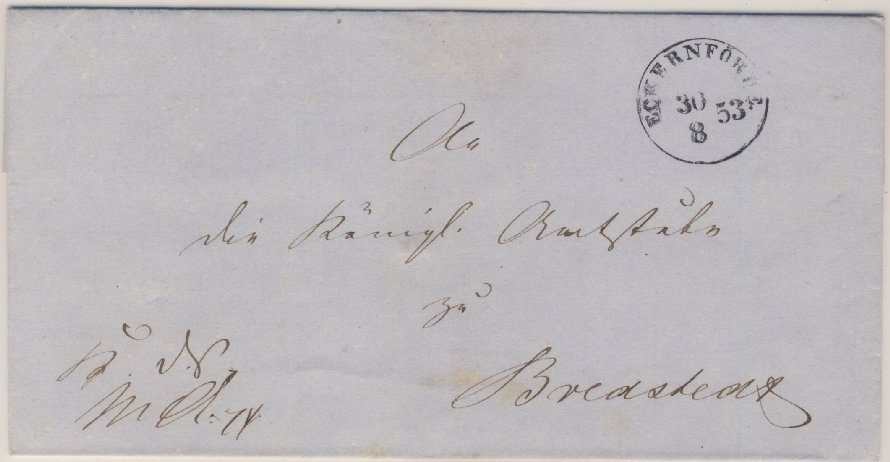 ECKERNFÖRDE
30 53
8
An
die Königl. Amtstube
zu
Bredstedt
K. d. S.